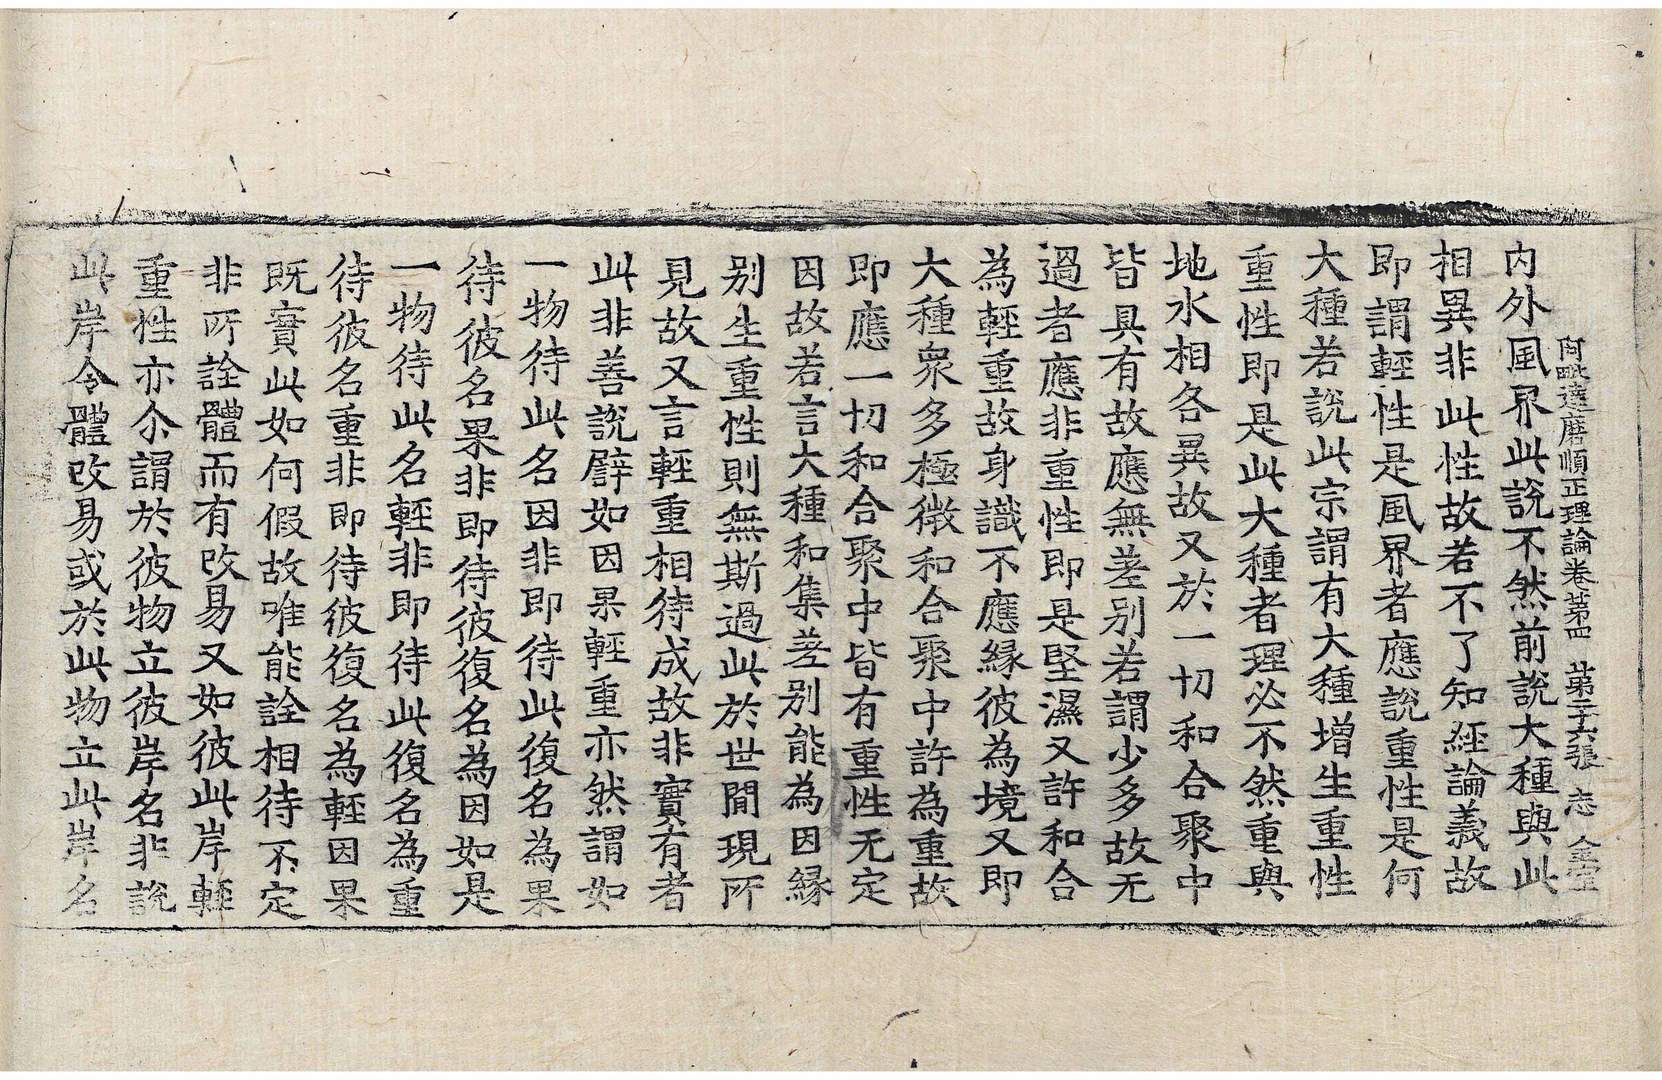 阿毗達磨順正理論卷第四 第二十六張 志 金堂
内外風界此説不然前説大種與此
相異非此性故若不了知經論義故
即謂輕性是風界者應説重性是何
大種若説此宗謂有大種增生重性
重性即是此大種者理必不然重與
地水相各異故又於一切和合聚中
皆具有故應無差别若謂少多故无
過者應非重性即是堅濕又許和合
為輕重故身識不應緣彼為境又即
大種衆多極微和合聚中許為重故
即應一切和合聚中皆有重性无定
因故若言大種和集差别能為因緣
别生重性則無斯過此於世間現所
見故又言輕重相待成故非實有者
此非善説譬如因果輕重亦然謂如
一物待此名因非即待此復名為果
待彼名果非即待彼復名為因如是
一物待此名輕非即待此復名為重
待彼名重非即待彼復名為輕因果
既實此如何假故唯能詮相待不定
非所詮體而有改易又如彼此岸輕
重性亦尒謂於彼物立彼岸名非説
此岸令體改易或於此物立此岸名